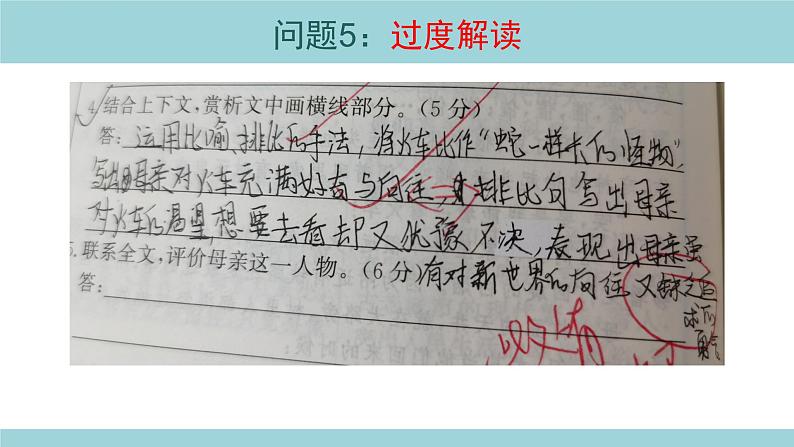 问题5：过度解读
4.结合上下文，赏析文中画横线部分。（5分）
答：运用比喻、排比的手法，将火车比作“蛇一样长的怪物”，
写出母亲对火车充满好奇与向往，排比句写出母亲
对火车的渴望，想要去看却又犹豫不决，表现出母亲虽
5.联系全文，评价母亲这一人物。（6分）有对新世界的向往又缺乏追
答：
求的
勇气